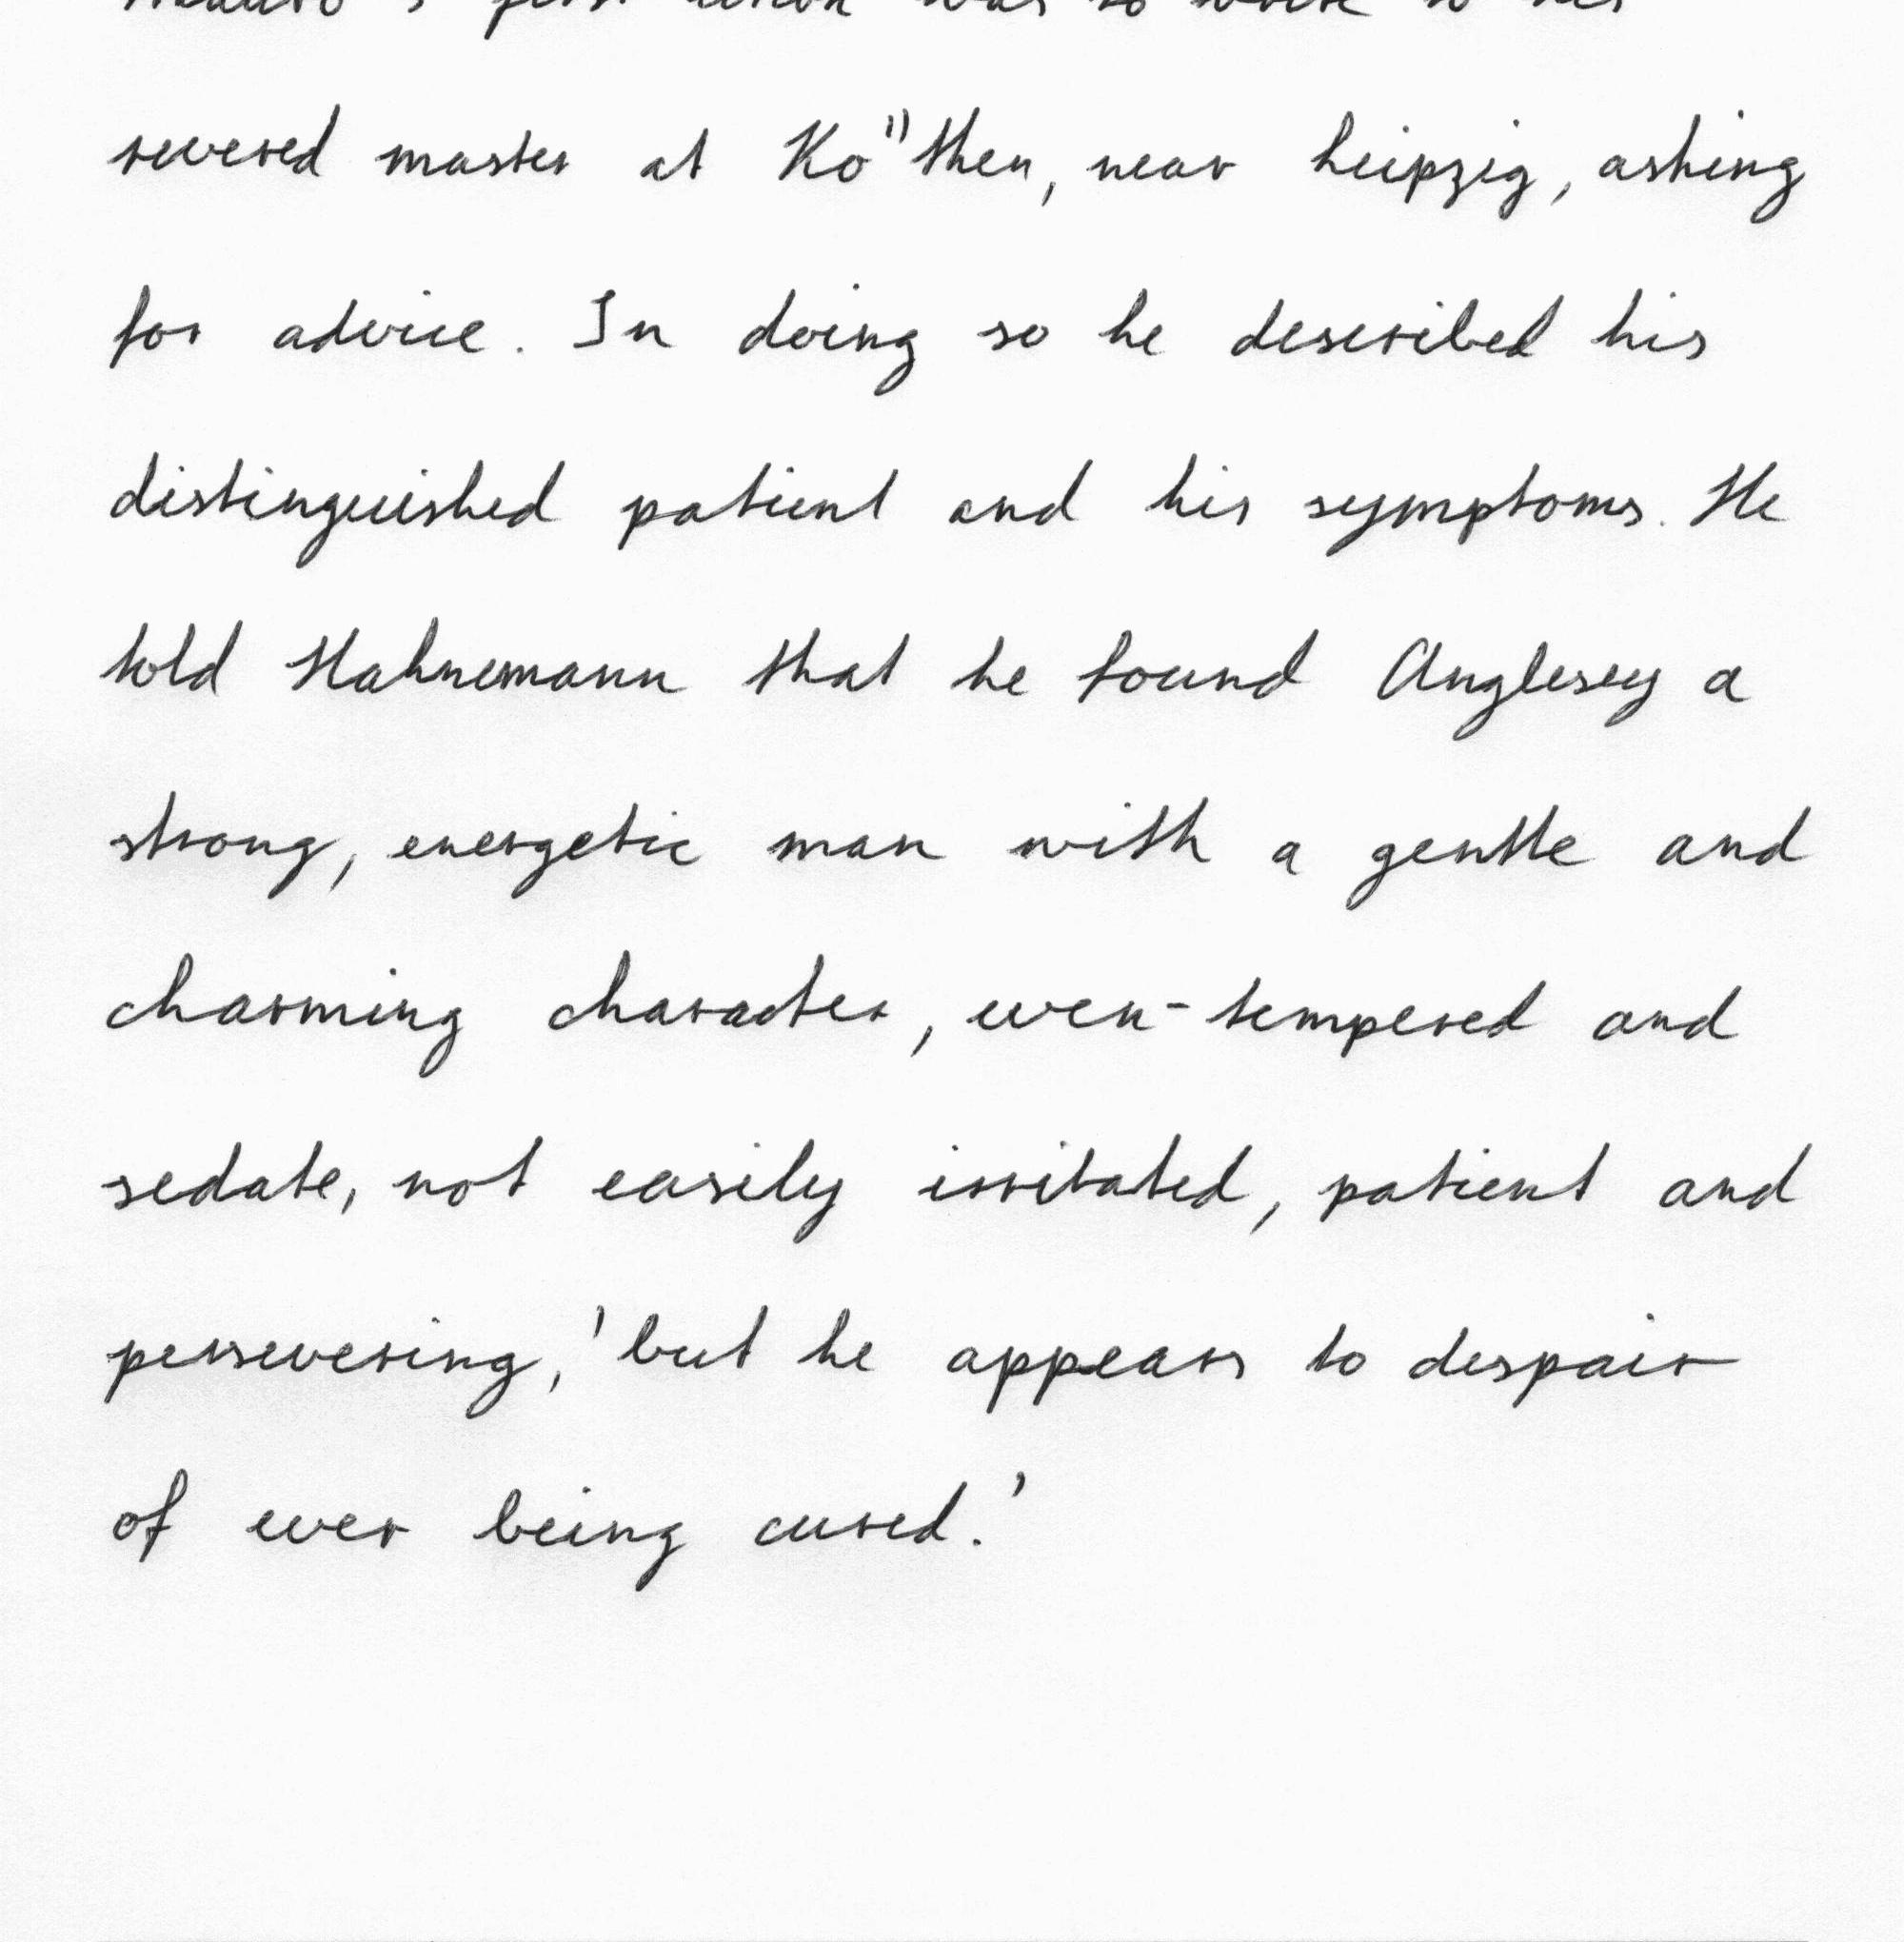 's first action was to write to his
revered master at Ko"then, near Leipzig, asking
for advice. In doing so he described his
distinguished patient and his symptoms. He
told Hahnemann that he found Anglesey a
strong, energetic man with a gentle and
charming character, even-tempered and
sedate, not easily irritated, patient and
persevering, 'but he appears to despair
of ever being cured.'